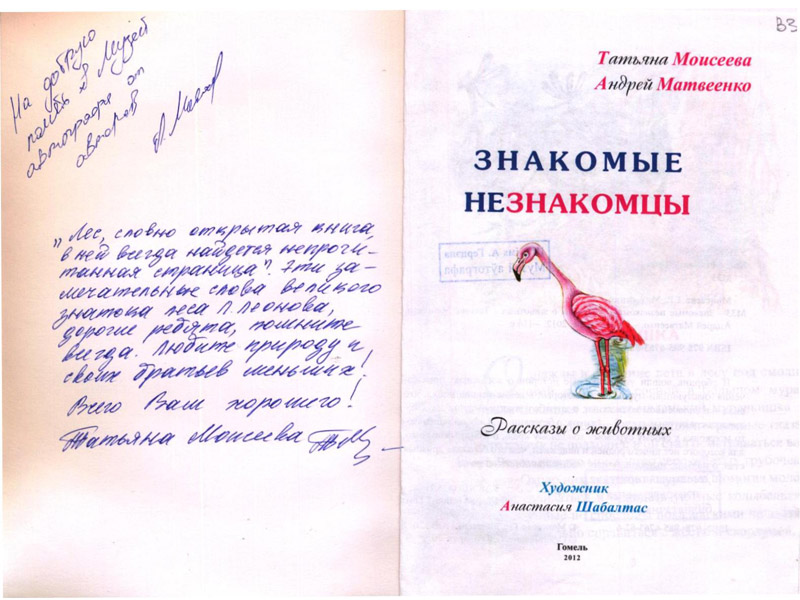 На добрую
память в Музей
автографа от
авторов
"Лес, словно открытая книга,
в ней всегда найдется непрочи-
танная страница". Эти за-
мечательные слова великого
знатока леса Л. Леонова,
дорогие ребята, помните
всегда. Любите природу и
своих братьев меньших!
Всего Вам хорошего!
Татьяна Моисеева
ВЗ
Татьяна Моисеева
Андрей Матвеенко
ЗНАКОМЫЕ
НЕЗНАКОМЦЫ
Рассказы о животных
Художник
Анастасия Шабалтас
Гомель
2012